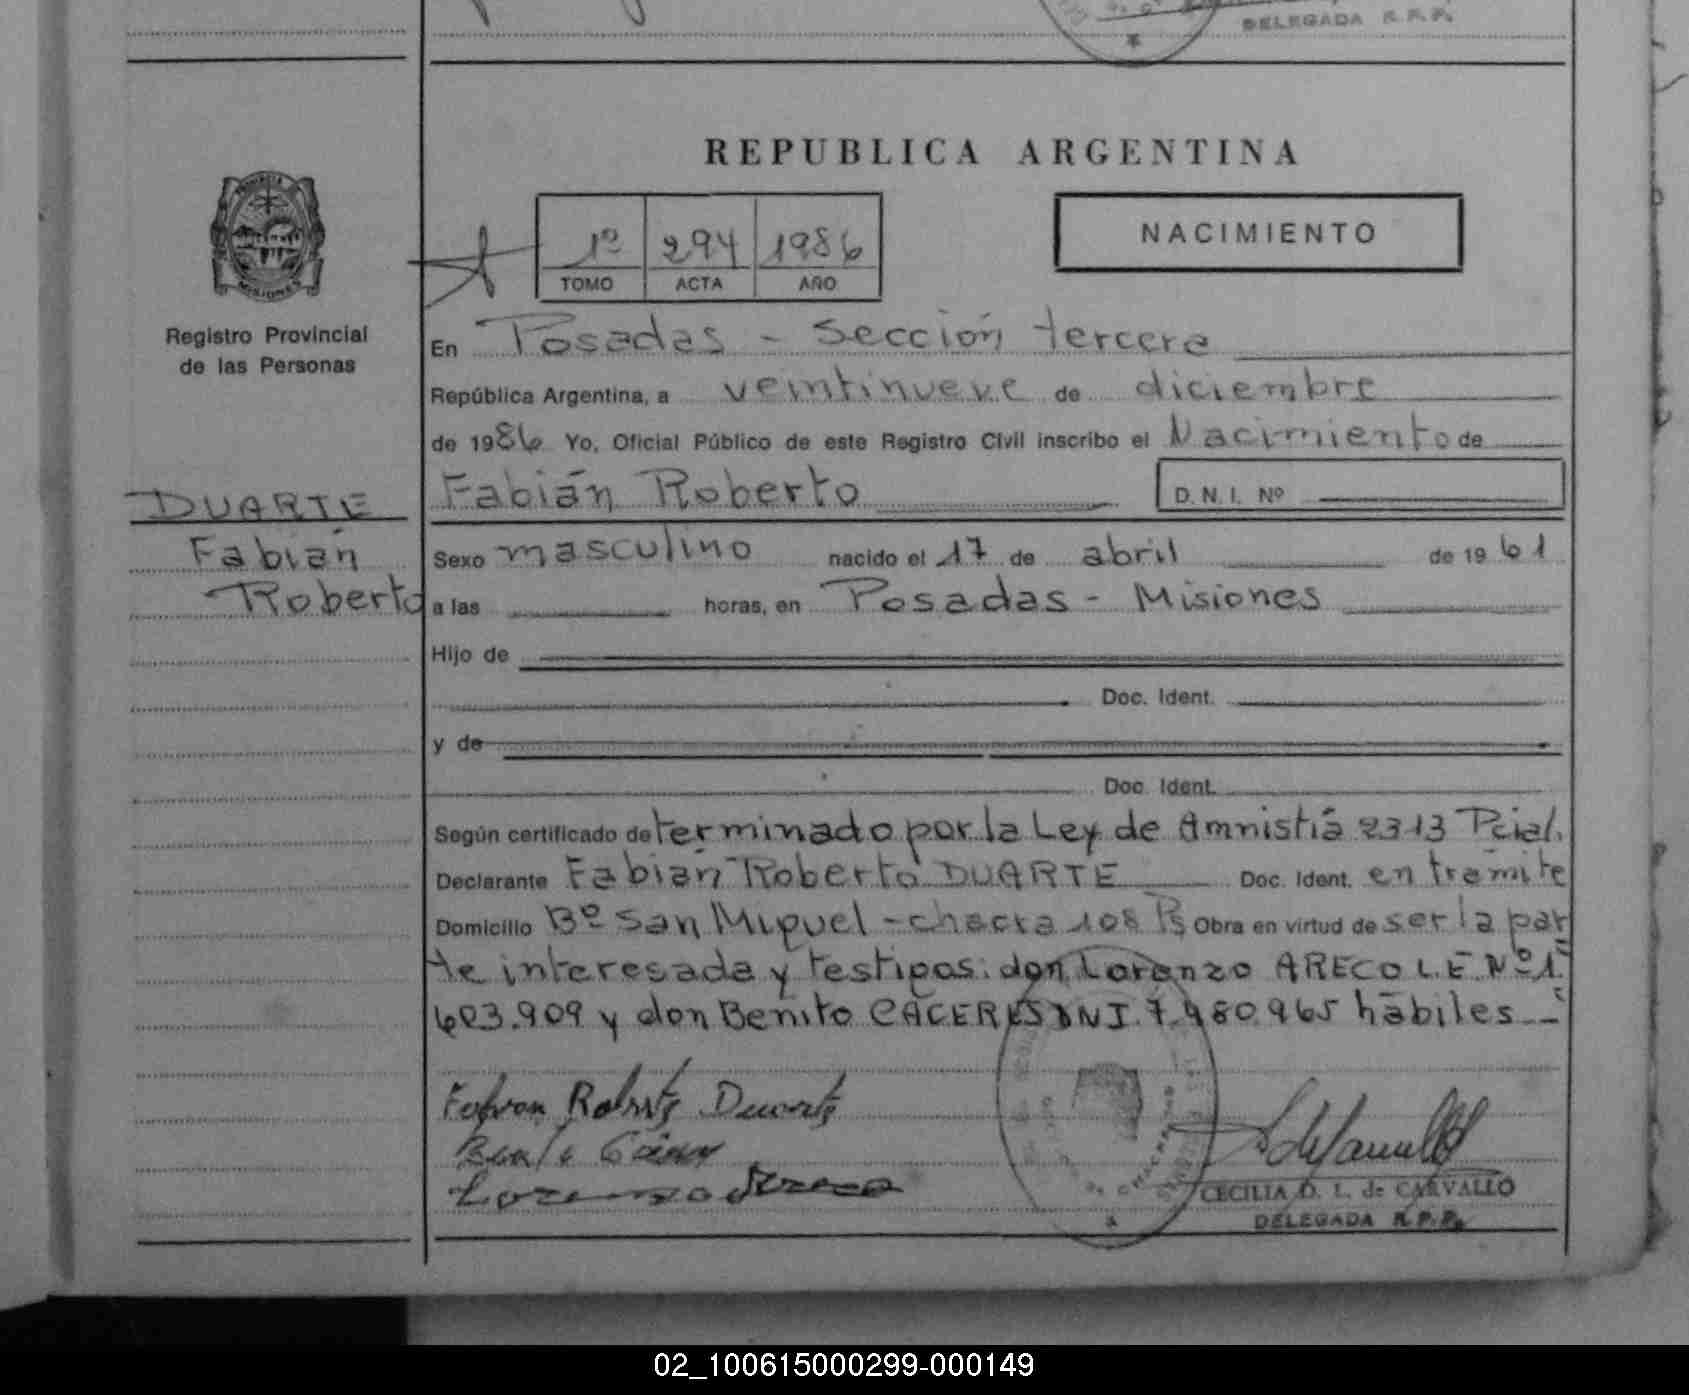 DELEGADA R.P.P.
REPUBLICA ARGENTINA
PROVINCIA
MISIONES
Registro Provincial
de las Personas
1º 294 1986
TOMO ACTA AÑO
NACIMIENTO
En Posadas - Sección tercera
República Argentina, a veintinueve de diciembre
de 1986 Yo, Oficial Público de este Registro Civil inscribo el Nacimiento de
Fabián Roberto D.N.I. Nº
DUARTE
Fabián
Roberto
Sexo masculino nacido el 17 de abril de 1961
a las horas, en Posadas - Misiones
Hijo de
Doc. Ident.
y de
Doc. Ident.
Según certificado determinado por la Ley de Amnistiá 2313 Pcial.
Declarante Fabián Roberto DUARTE Doc. Ident. en trámite
Domicilio Bº San Miguel - chacra 108 Ps Obra en virtud de ser la par
te interesada y testigos: don Lorenzo ARECO L.E. Nº 1.
603.909 y don Benito CACERES DNI. 7.480.965 hábiles
Fabian Roberto Duarte
Lorenzo Areco
CECILIA D. L. de CARVALLO
DELEGADA R.P.P.
02_100615000299-000149